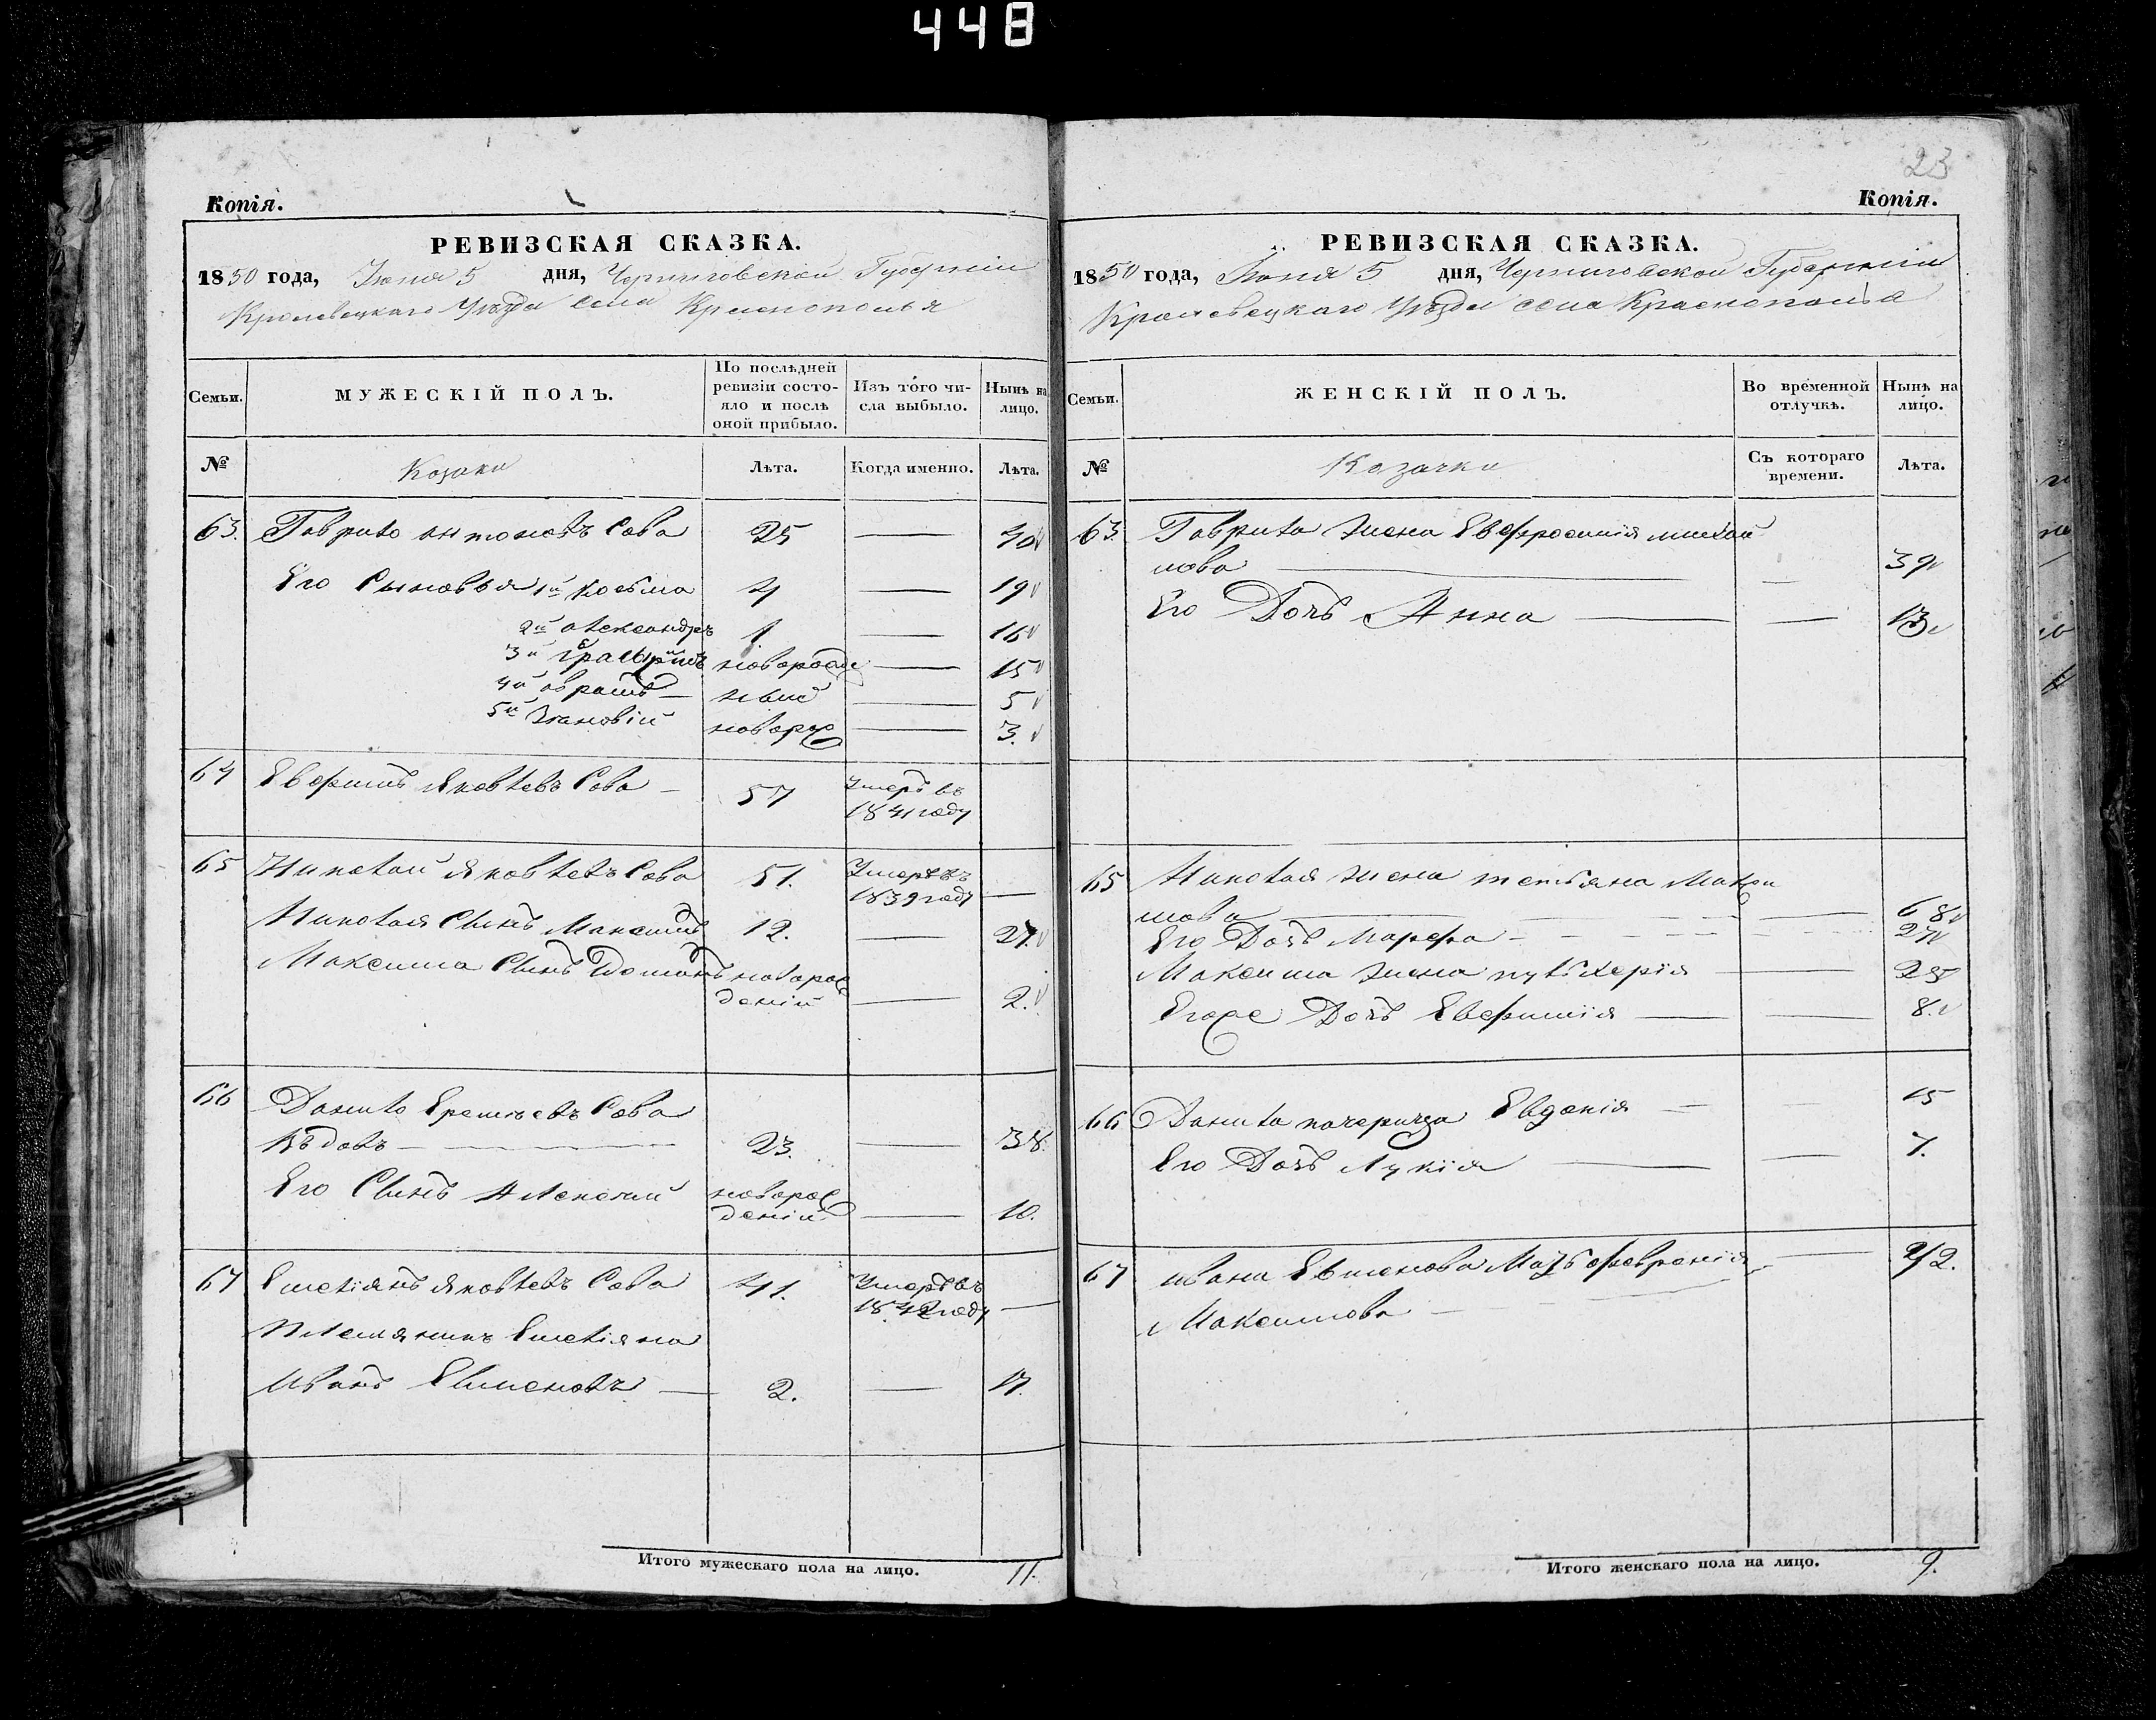 448
23
Копія.
РЕВИЗСКАЯ СКАЗКА.
1850 года, Іюня 5 дня, Черниговской Губерніи
Кролевецкаго Уѣзда села Краснополья
Семьи.
МУЖЕСКІЙ ПОЛЪ.
По послѣдней ревизіи состояло и послѣ оной прибыло.
Изъ того числа выбыло.
Нынѣ на лицо.
№
Козаки
Лѣта.
Когда именно.
Лѣта.
63. Гаврило Антоновъ Сова 25 — 40
Его Сыновья 1й Косьма 4 — 19
2й Александръ 1. — 16
3й новорож — 15
4й — 5
5й Зѣновій новорож — 3.
64 Евфимъ Яковлевъ Сова — 57 Умеръ въ
1841 году
65 Николай Яковлевъ Сова 51. Умеръ въ
1839 году —
Николая Сынъ Максимъ 12. — 27.
Максима Сынъ Домонъ новорож
деній — 2.
66 Данило Еремѣевъ Сова
Вдовъ — 23. — 38.
Его Сынъ Алексѣй новорож
деній — 10.
67 Емеліянъ Яковлевъ Сова 41. Умеръ въ
1842 году —
Племяникъ Емеліяна
Иванъ Евменовъ — 2. — 17.
Итого мужескаго пола на лицо. 11.
Копія.
РЕВИЗСКАЯ СКАЗКА.
1850 года, Іюня 5 дня, Черниговской Губерніи
Кролевецкаго Уѣзда села Краснополья
Семьи.
ЖЕНСКІЙ ПОЛЪ.
Во временной отлучкѣ.
Нынѣ на лицо.
№
Козачки
Съ котораго времени.
Лѣта.
63. Гаврила Жена Евфросинія Михай
лова — — 39
Его Дочь Анна — — 13
65 Николая Жена Татьяна Макси
мова — — 68
Его Дочь Марфа — — 27
Максима Жена Пульхерія — — 25
Егоже Дочь Евфимія — — 8.
66 Данила падчерица Евдокія — — 15
Его Дочь Лукія — — 7.
67 Ивана Евменова Мать Февронія — 42.
Максимова —
Итого женскаго пола на лицо. 9.